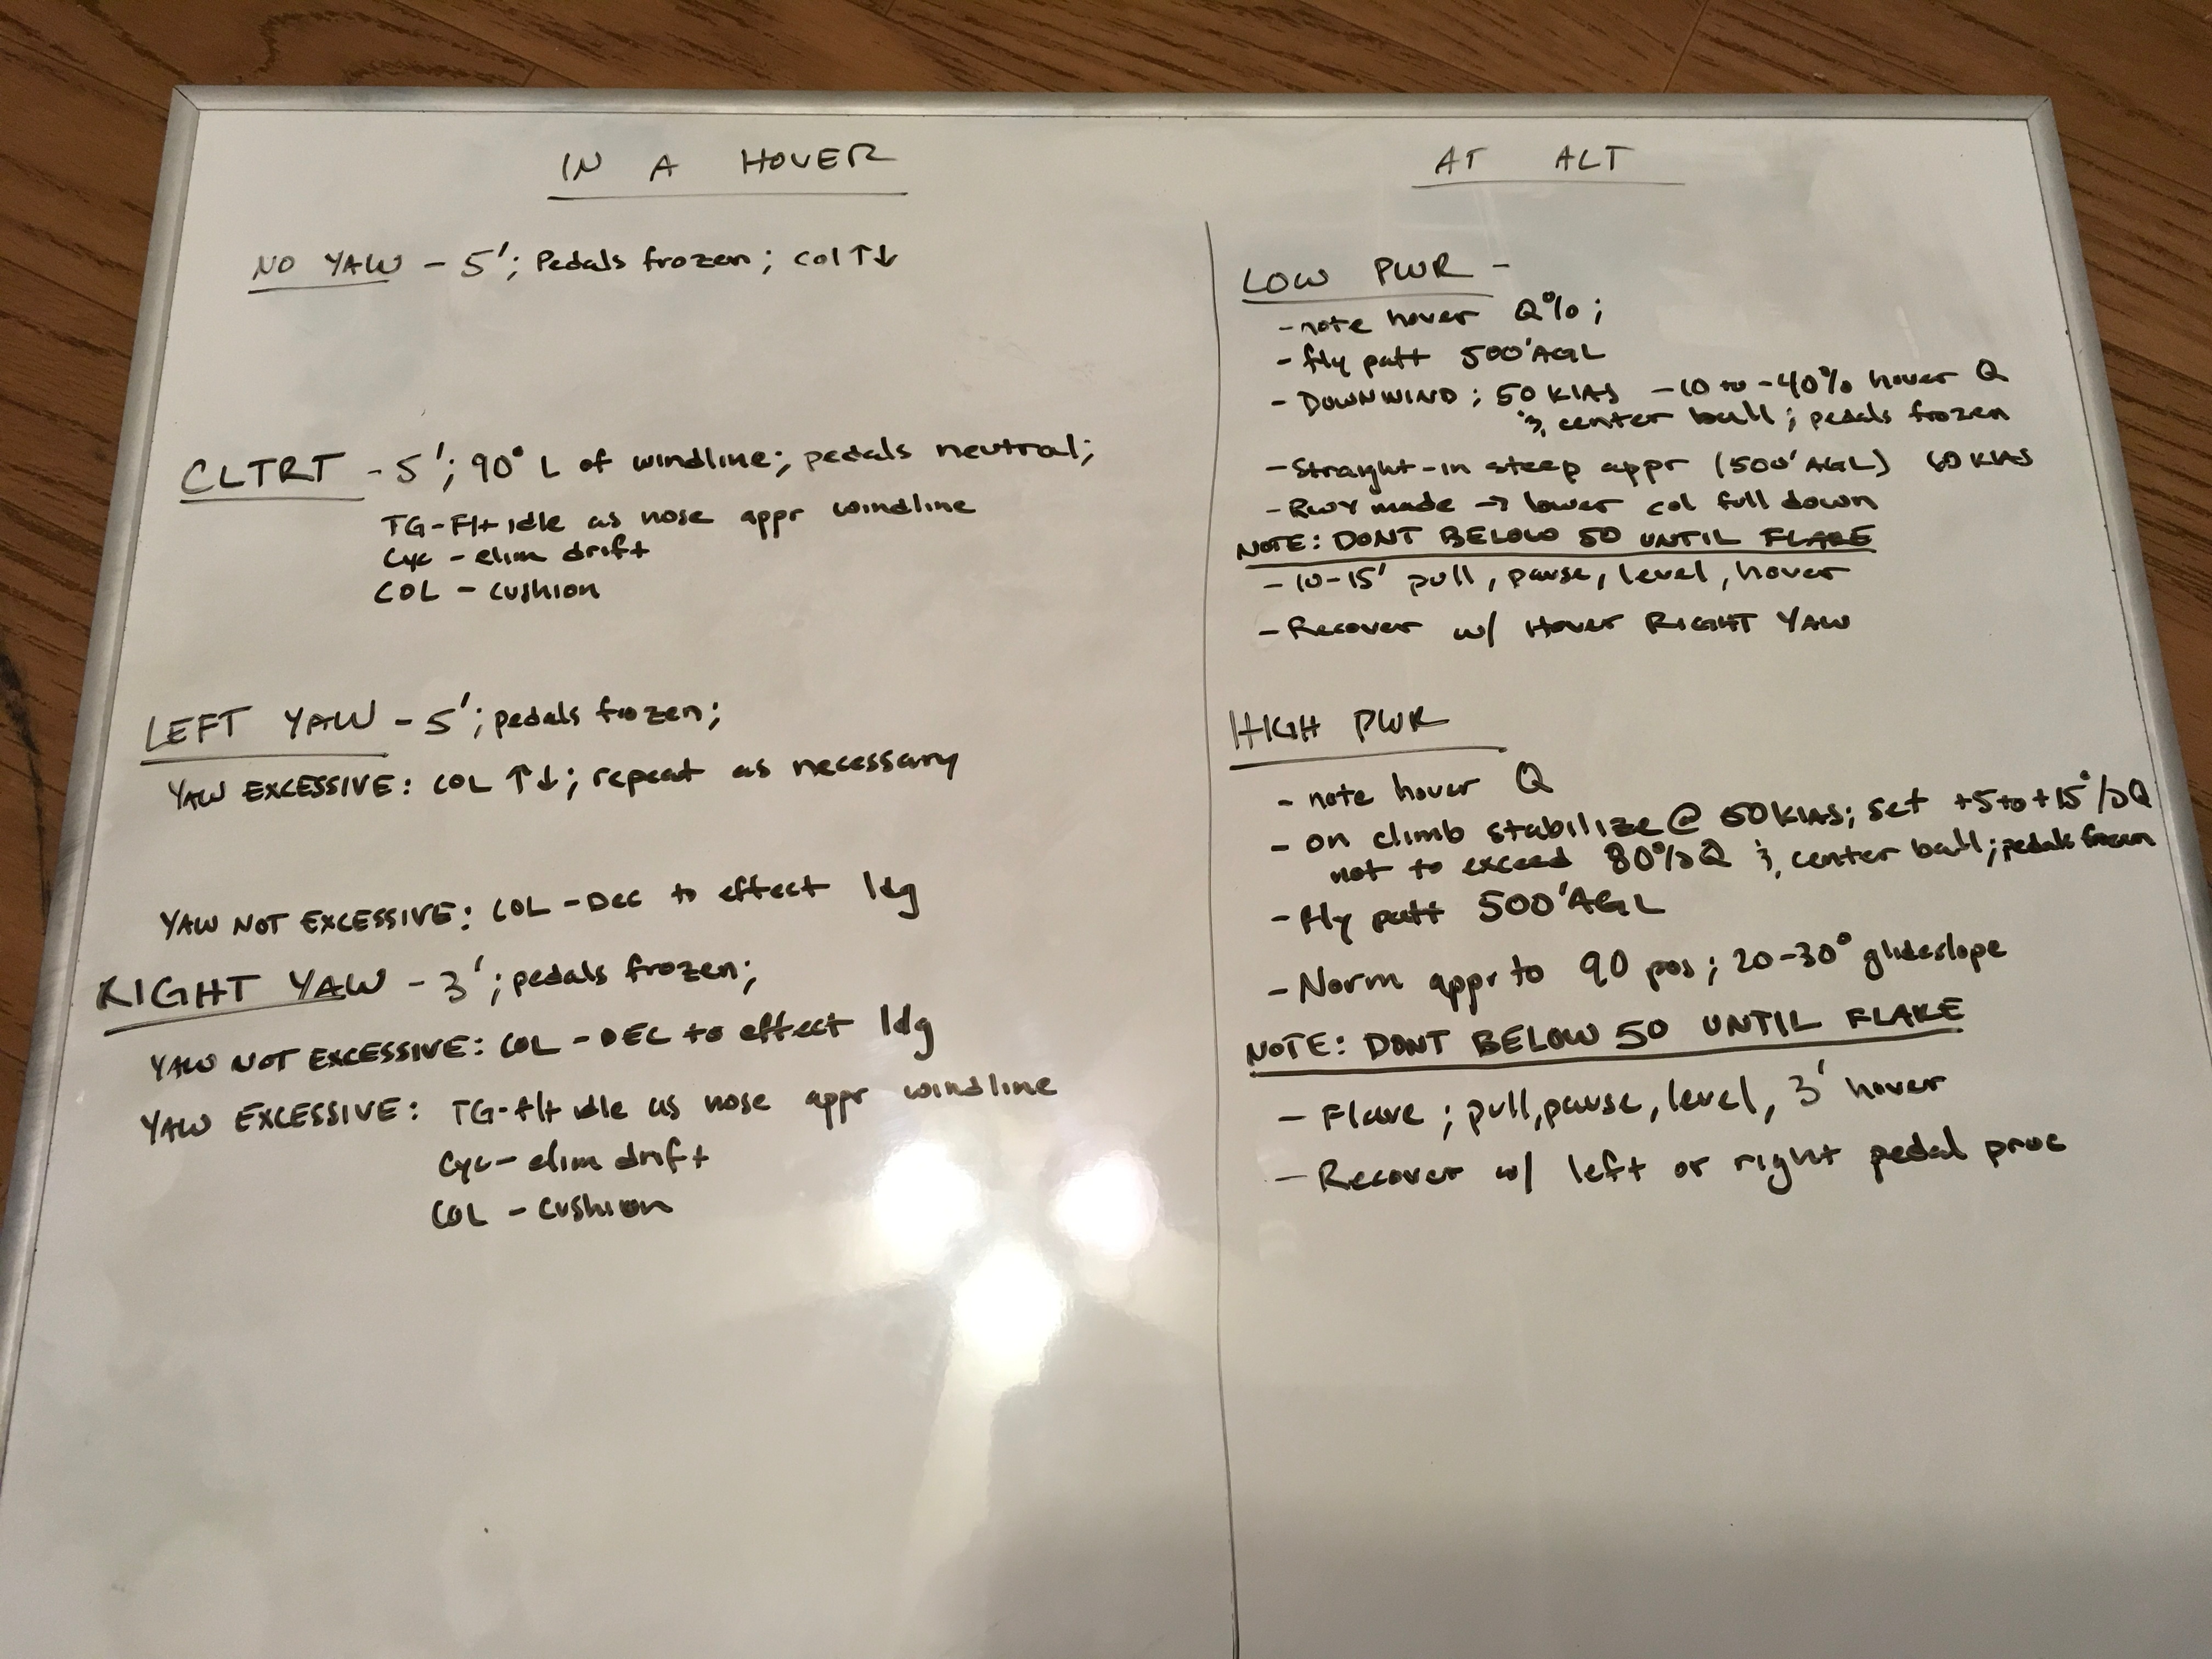 IN A HOVER
NO YAW - 5'; Pedals frozen; col ↑↓
CLTRT - 5'; 90° L of windline; pedals neutral;
TG-Flt idle as nose appr windline
Cyc - elim drift
COL - cushion
LEFT YAW - 5'; pedals frozen;
YAW EXCESSIVE: COL ↑↓; repeat as necessary
YAW NOT EXCESSIVE: COL - Dec to effect ldg
RIGHT YAW - 3'; pedals frozen;
YAW NOT EXCESSIVE: COL - DEC to effect ldg
YAW EXCESSIVE: TG-flt idle as nose appr windline
Cyc - elim drift
COL - cushion
AT ALT
LOW PWR -
- note hover Q%;
- fly patt 500' AGL
- DOWNWIND; 50 KIAS -10 to -40% hover Q
& center ball; pedals frozen
- Straight-in steep appr (500' AGL) 60 KIAS
- RWY made → lower col full down
NOTE: DONT BELOW 50 UNTIL FLARE
- 10-15' pull, pause, level, hover
- Recover w/ Hover RIGHT YAW
HIGH PWR
- note hover Q
- on climb stabilize @ 50 KIAS; set +5 to +15%Q
not to exceed 80%Q & center ball; pedals frozen
- fly patt 500' AGL
- Norm appr to 90 pos; 20-30° glideslope
NOTE: DONT BELOW 50 UNTIL FLARE
- Flare; pull, pause, level, 3' hover
- Recover w/ left or right pedal proc